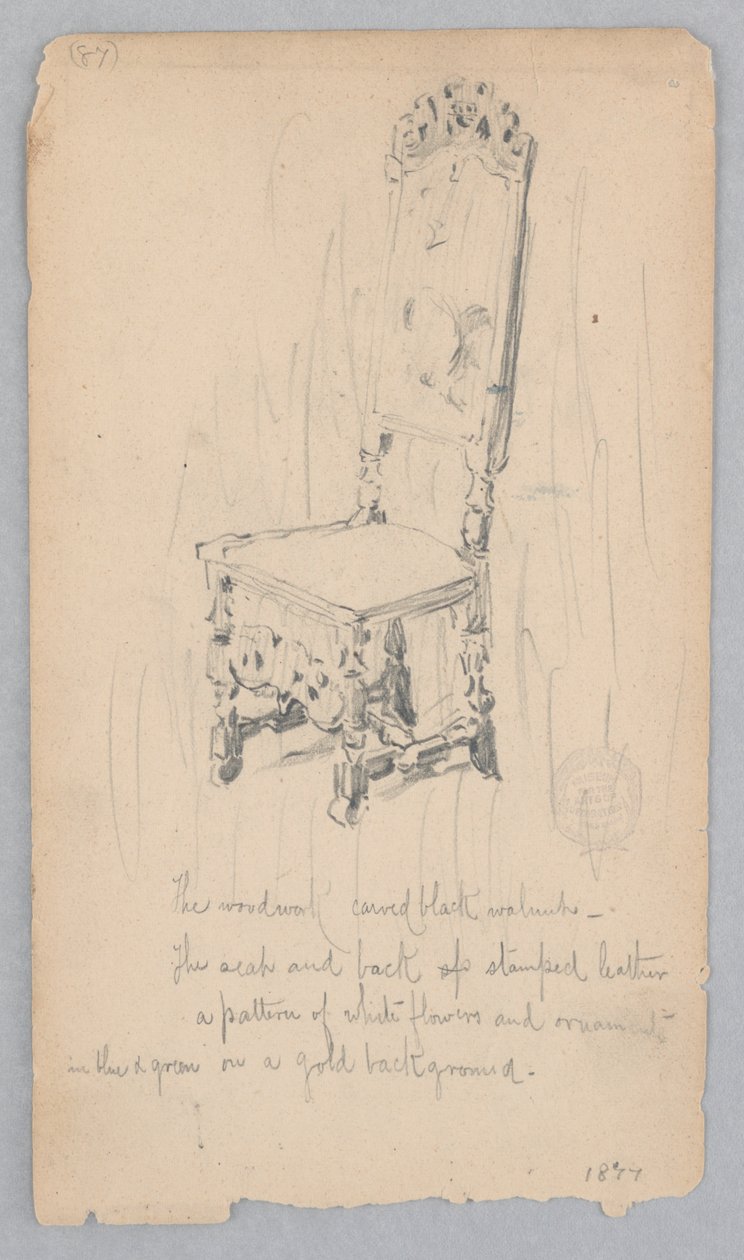 (87)
The woodwork carved black walnut –
The seat and back of stamped leather
a pattern of white flowers and ornaments
in blue & green on a gold background –
1877